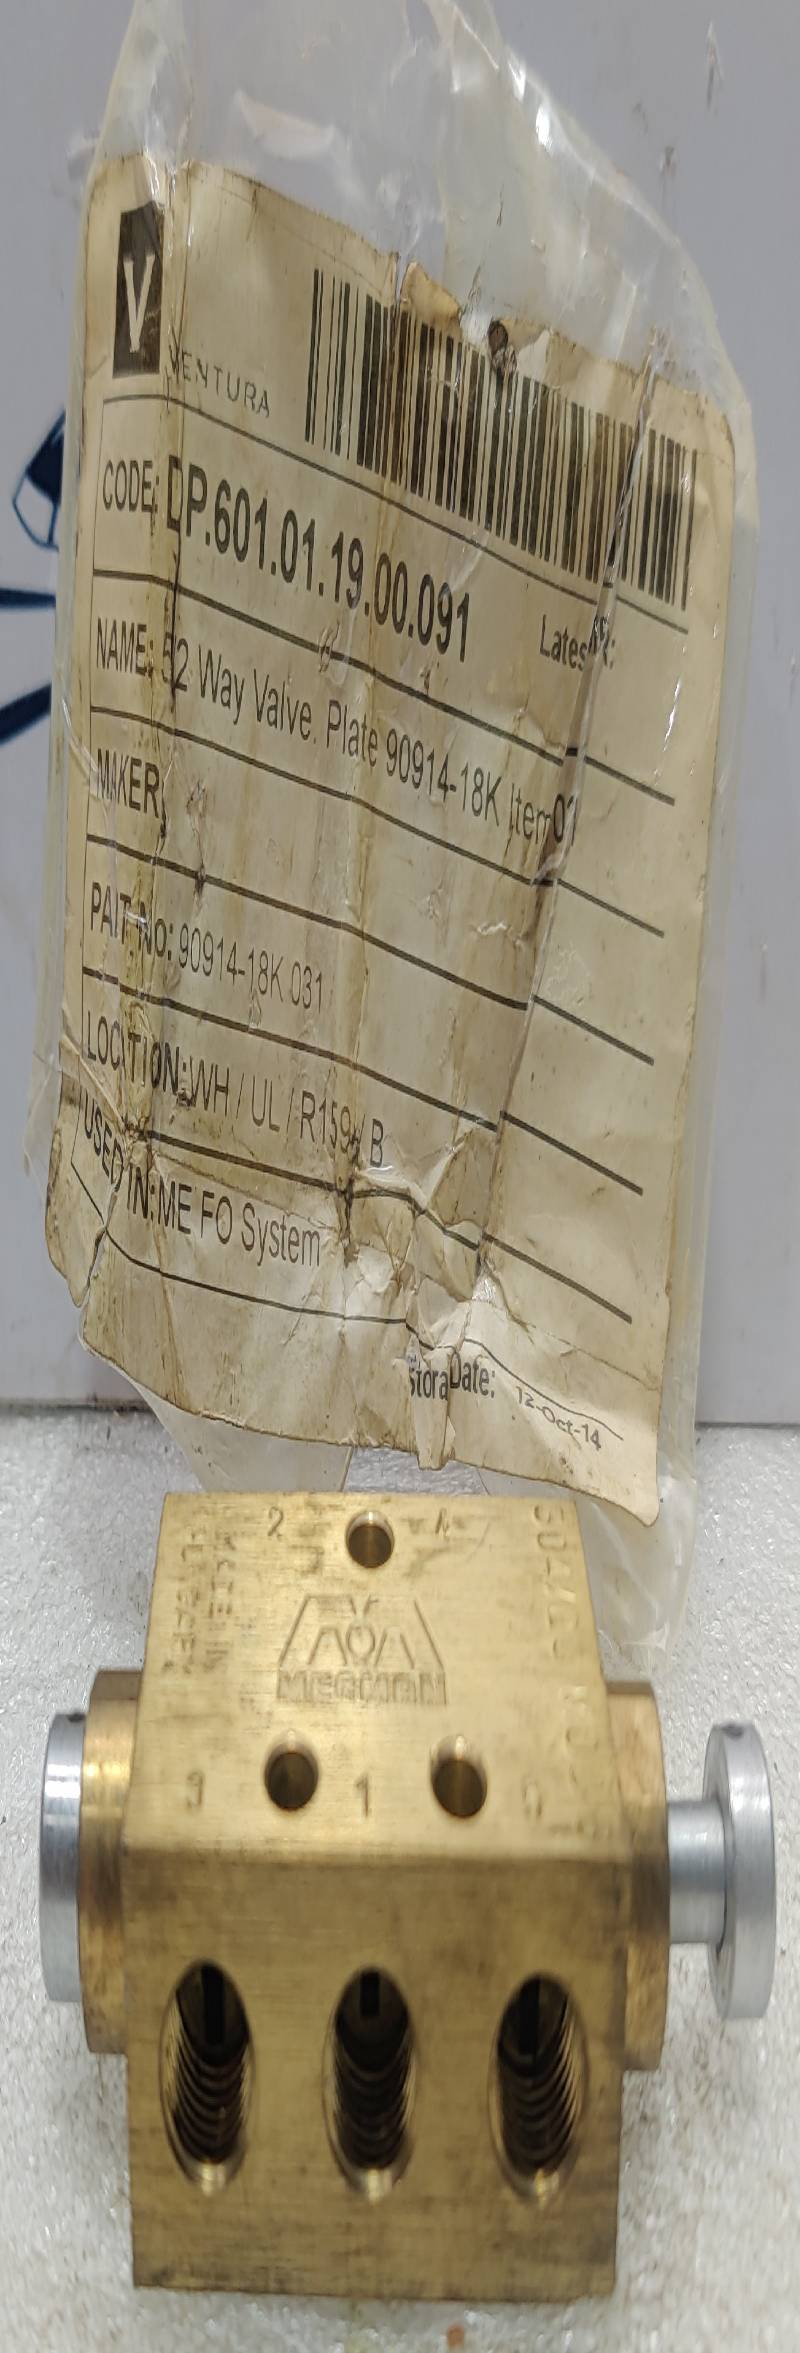 V
VENTURA
CODE: DP.601.01.19.00.091
NAME: 52 Way Valve. Plate 90914-18K Item
MAKER:
PART No: 90914-18K 031
LOCATION: WH / UL / R159 / B
USED IN: ME FO System
Date: 12-Oct-14
2 4
MADE IN
MECMAN
3 1 5